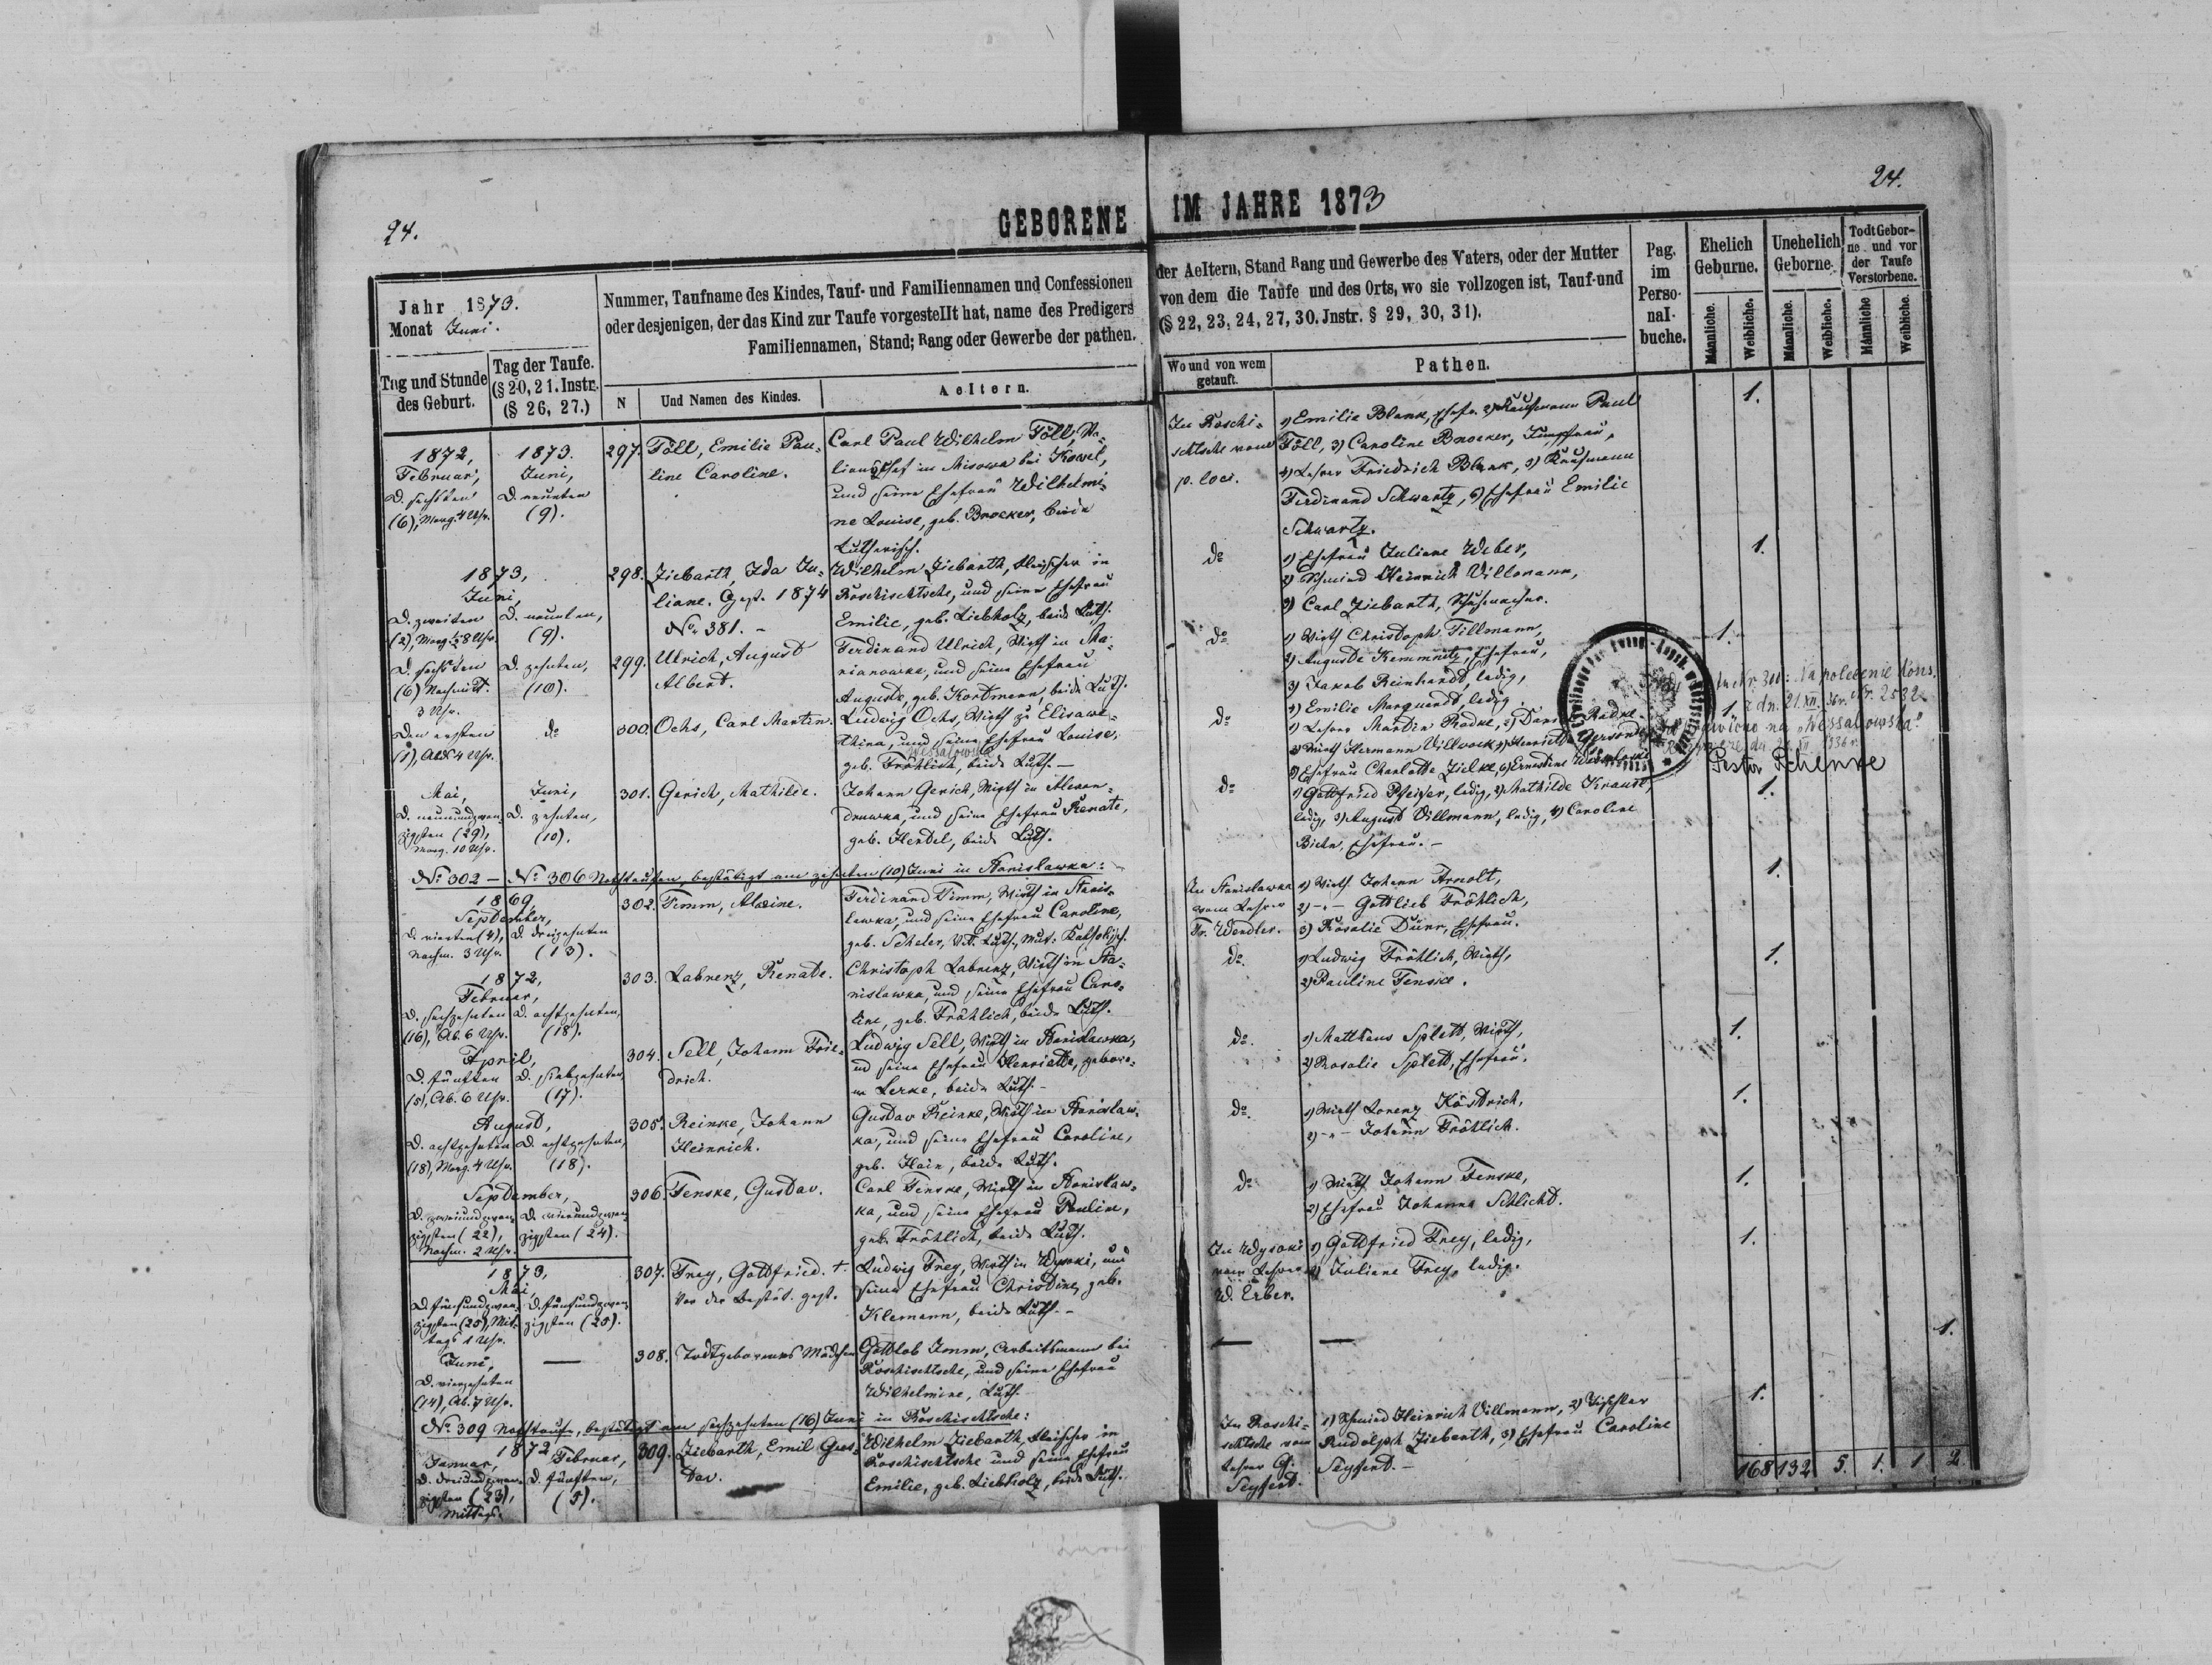 24.
GEBORENE
Jahr 1873.
Monat Juni.
Tag und Stunde des Geburt.
Tag der Taufe. (§ 20, 21. Instr. (§ 26, 27.)
Nummer, Taufname des Kindes, Tauf- und Familiennamen und Confessionen
oder desjenigen, der das Kind zur Taufe vorgestellt hat, name des Predigers
Familiennamen, Stand; Rang oder Gewerbe der pathen.
N
Und Namen des Kindes.
Aeltern.
1872,
Februar,
D. sechsten
(6), Morg. 4 Uhr.
1873.
Juni,
D. neunten
(9).
297. Föll, Emilie Pau-
line Caroline.
Carl Paul Wilhelm Föll,
in Misowa bei Kowel,
und seine Ehefrau Wilhelmi-
ne Louise, geb. Brocker, beide
Lutherisch.
1873,
Juni,
D. zweiten
(2), Morg. ½8 Uhr.
D. neunten,
(9).
298. Ziebarth, Ida Ju-
liane. Gest. 1874
No. 381. -
Wilhelm Ziebarth, Fleischer in
Roschischtsche, und seine Ehefrau
Emilie, geb. Liebholz, beide Luth.
D. sechsten
(6) Nachmitt.
3 Uhr.
D. zehnten,
(10).
299. Ulrich, August
Albert.
Ferdinand Ulrich, Wirth in Ma-
rianowka, und seine Ehefrau
Auguste, geb. Kordmann, beide Luth.
Den ersten
(1), Ab. 4 Uhr.
do
300. Ochs, Carl Martin.
Ludwig Ochs, Wirth zu Elisawe-
thina, und seine Ehefrau Louise,
Wessalowska
geb. Fröhlich, beide Luth. -
Mai,
D. neunundzwan-
zigsten (29),
Morg. 10 Uhr.
Juni,
D. zehnten,
(10).
301. Gerich, Mathilde.
Johann Gerich, Wirth in Alexan-
drowka, und seine Ehefrau Renate,
geb. Hendel, beide Luth.
No. 302 - No. 306 Nothtaufen, bestätigt am zehnten (10) Juni in Stanislawka:
1869,
September,
D. vierten (4),
Nachm. 3 Uhr.
D. dreizehnten
(13).
302. Timm, Alwine.
Ferdinand Timm, Wirth in Stanis-
lawka, und seine Ehefrau Caroline,
geb. Scheler, Vat. Luth., Mut. Katholisch.
1872,
Februar,
D. sechzehnten
(16), Ab. 6 Uhr.
D. achtzehnten,
(18).
303. Labrenz, Renate.
Christoph Labrenz, Wirth in Sta-
nislawka, und seine Ehefrau Caro-
line, geb. Fröhlich, beide Luth.
April,
D. fünften
(5), Ab. 6 Uhr.
D. siebzehnten,
(17).
304. Sell, Johann Frie-
drich.
Ludwig Sell, Wirth in Stanislawka,
und seine Ehefrau Henriette, gebore-
ne Lerke, beide Luth. -
August,
D. achtzehnten
(18), Morg. 4 Uhr.
D. achtzehnten,
(18).
305. Reinke, Johann
Heinrich.
Gustav Reinke, Wirth in Stanislaw-
ka, und seine Ehefrau Caroline,
geb. Hein, beide Luth.
September,
D. zweiundzwan-
zigsten (22),
Nachm. 2 Uhr.
D. vierundzwan-
zigsten (24).
306. Fenske, Gustav.
Carl Fenske, Wirth in Stanislaw-
ka, und seine Ehefrau Pauline,
geb. Fröhlich, beide Luth.
1873,
Mai,
D. fünfundzwan-
zigsten (25), Mit-
tags 1 Uhr.
D. fünfundzwan-
zigsten (25).
307. Frey, Gottfried. †
Vor der Bestät. gest.
Ludwig Frey, Wirth in Wysoki, und
seine Ehefrau Christine, geb.
Klemann, beide Luth. -
Juni,
D. vierzehnten
(14), Ab. 7 Uhr.
308. Todtgeborenes Mädchen
Gottlob Imm, Arbeitsmann bei
Roschischtsche, und seine Ehefrau
Wilhelmine, Luth.
No. 309 Nothtaufe, bestätigt am sechzehnten (16) Juni in Roschischtsche:
1872
Januar,
D. dreiundzwan-
zigsten (23),
Mittags.
Februar,
D. fünften,
(5).
309. Ziebarth, Emil Gus-
tav.
Wilhelm Ziebarth, Fleischer in
Roschischtsche und seine Ehefrau
Emilie, geb. Liebholz, beide Luth.
24.
IM JAHRE 1873
der Aeltern, Stand Rang und Gewerbe des Vaters, oder der Mutter
von dem die Taufe und des Orts, wo sie vollzogen ist, Tauf-und
(§ 22, 23, 24, 27, 30. Jnstr. § 29, 30, 31).
Wo und von wem getauft.
Pathen.
Pag. im Perso-nal-buche.
Ehelich Geburne.
Unehelich Geborne.
Todt Gebor-ne und vor der Taufe Verstorbene.
Männliche.
Weibliche.
Männliche.
Weibliche.
Männliche
Weibliche.
In Roschi-
schtsche vom
p. loci.
1) Emilie Blank, Ehefr. 2) Kaufmann Paul
Föll, 3) Caroline Brocker, Jungfrau,
4) Lehrer Friedrich Blank, 5) Kaufmann
Ferdinand Schwartz, 6) Ehefrau Emilie
Schwartz.
1.
do
1) Ehefrau Juliane Weber,
2) Schmied Heinrich Villmann,
3) Carl Ziebarth, Schuhmacher.
1.
do
1) Wirth Christoph Tillmann,
2) Auguste Kemmnitz, Ehefrau,
3) Jakob Reinhardt, ledig,
4) Emilie Marquardt, ledig.
1.
do
1) Lehrer Martin Radke, 2) Radke
3) Wirth Hermann Villwock, 4) Henriette
5) Ehefrau Charlotte Zielke, 6) Ernestine
1.
Nr. 300: Na polecenie Kons.
z dn. 21.XII. 36 r. Nr. 2582
na "Wessalowska"
1936 r.
Pastor Schenke
do
1) Gottfried Pfeifer, ledig, 2) Mathilde Krause,
ledig, 3) August Villmann, ledig, 4) Caroline
Ehefrau. -
1.
In Stanislawka
vom Lehrer
Fr. Wendler.
1) Wirth Johann Arnolt,
2) -"- Gottlieb Fröhlich,
3) Rosalie Dürr, Ehefrau.
1.
do.
1) Ludwig Fröhlich, Wirth,
2) Pauline Fenske.
1.
do.
1) Matthäus Splett, Wirth,
2) Rosalie Splett, Ehefrau.
1.
do.
1) Wirth Lorenz Köstrich,
2) -"- Johann Fröhlich.
1.
do
1) Wirth Johann Fenske,
2) Ehefrau Johanna Schlicht.
1.
In Wysoki
vom Lehrer
W. Erber.
1) Gottfried Frey, ledig,
2) Juliane Frey, ledig.
1.
— —
1.
In Roschi-
schtsche vom
Lehrer G.
Seyferd.
1) Schmied Heinrich Villmann, 2) Tischler
Rudolph Ziebarth, 3) Ehefrau Caroline
Seyferd. -
1.
168 132 5. 1. 1 2